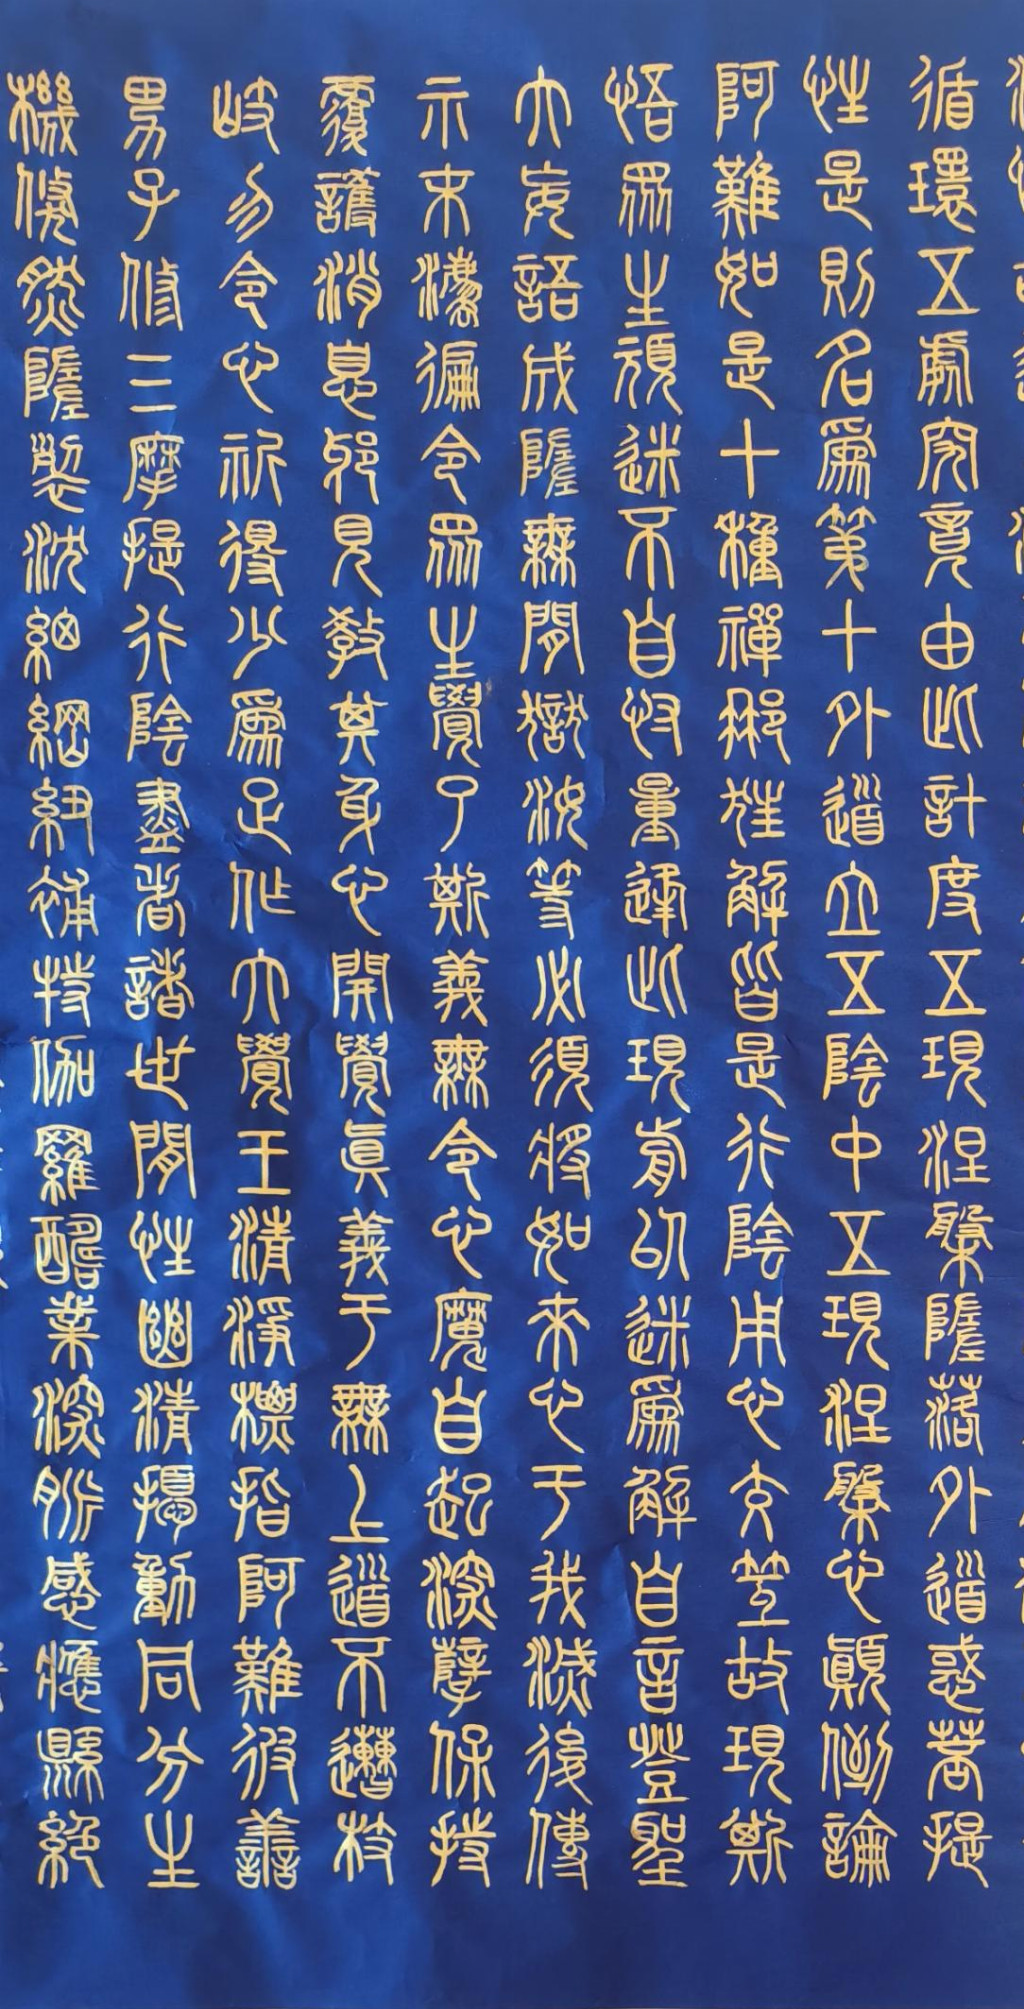 循環五處究竟由此計度五現涅槃隓落外道惑菩提
性是則名爲第十外道立五陰中五現涅槃心顚倒論
阿難如是十種禪那狂解皆是行陰用心交互故現斯
悟眾生頑迷不自忖量逢此現前以迷爲解自言登聖
大妄語成隓無間獄汝等必須將如來心于我滅後傳
示末灋徧令眾生覺了斯義無令心魔自起深孽保持
覆護消息邪見教其身心開覺眞義于無上道不遭枝
岐勿令心祈得少爲足作大覺王清淨標指阿難彼善
男子修三摩提行陰盡者諸世間性幽清擾動同分生
機倏然隓裂沈細綱紐補特伽羅酬業深脈感應縣絕